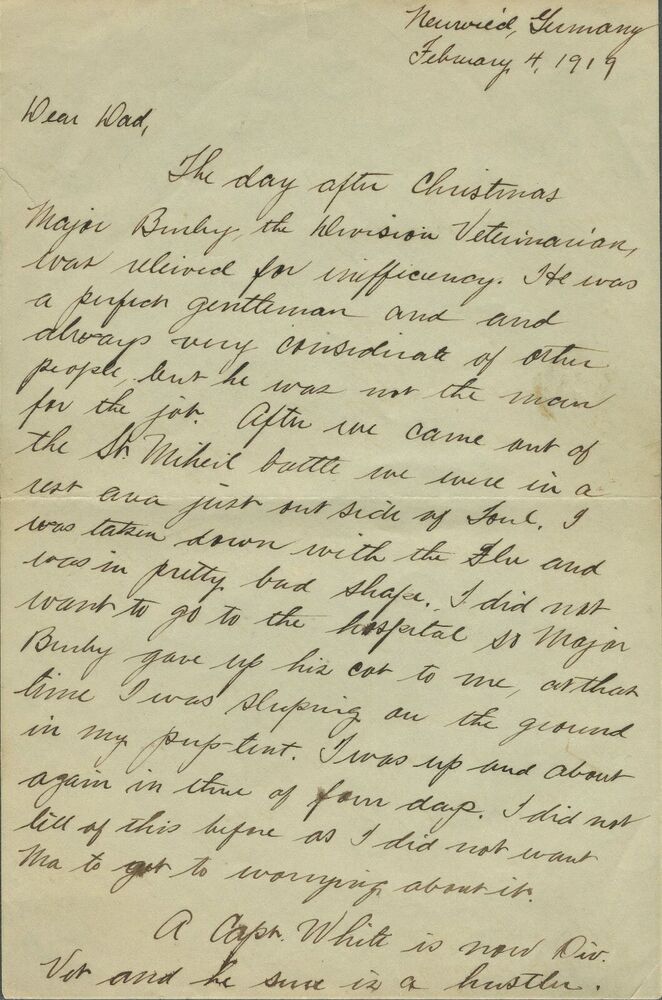 Neuwied, Germany
February 4, 1919
Dear Dad,
The day after Christmas
Major Burby, the Division Veterinarian,
was releived for inifficiency. He was
a perfect gentleman and and
always very considerate of other
people, but he was not the man
for the job. After we came out of
the St. Miheil battle we were in a
rest area just out side of Toul. I
was taken down with the Flu and
was in pretty bad shape. I did not
want to go to the hospital so Major
Burby gave up his cot to me, at that
time I was sleeping on the ground
in my pup-tent. I was up and about
again in three of four days. I did not
tell of this before as I did not want
Ma to get to worrying about it.
A Capt. White is now Div.
Vet and he sure is a hustler.